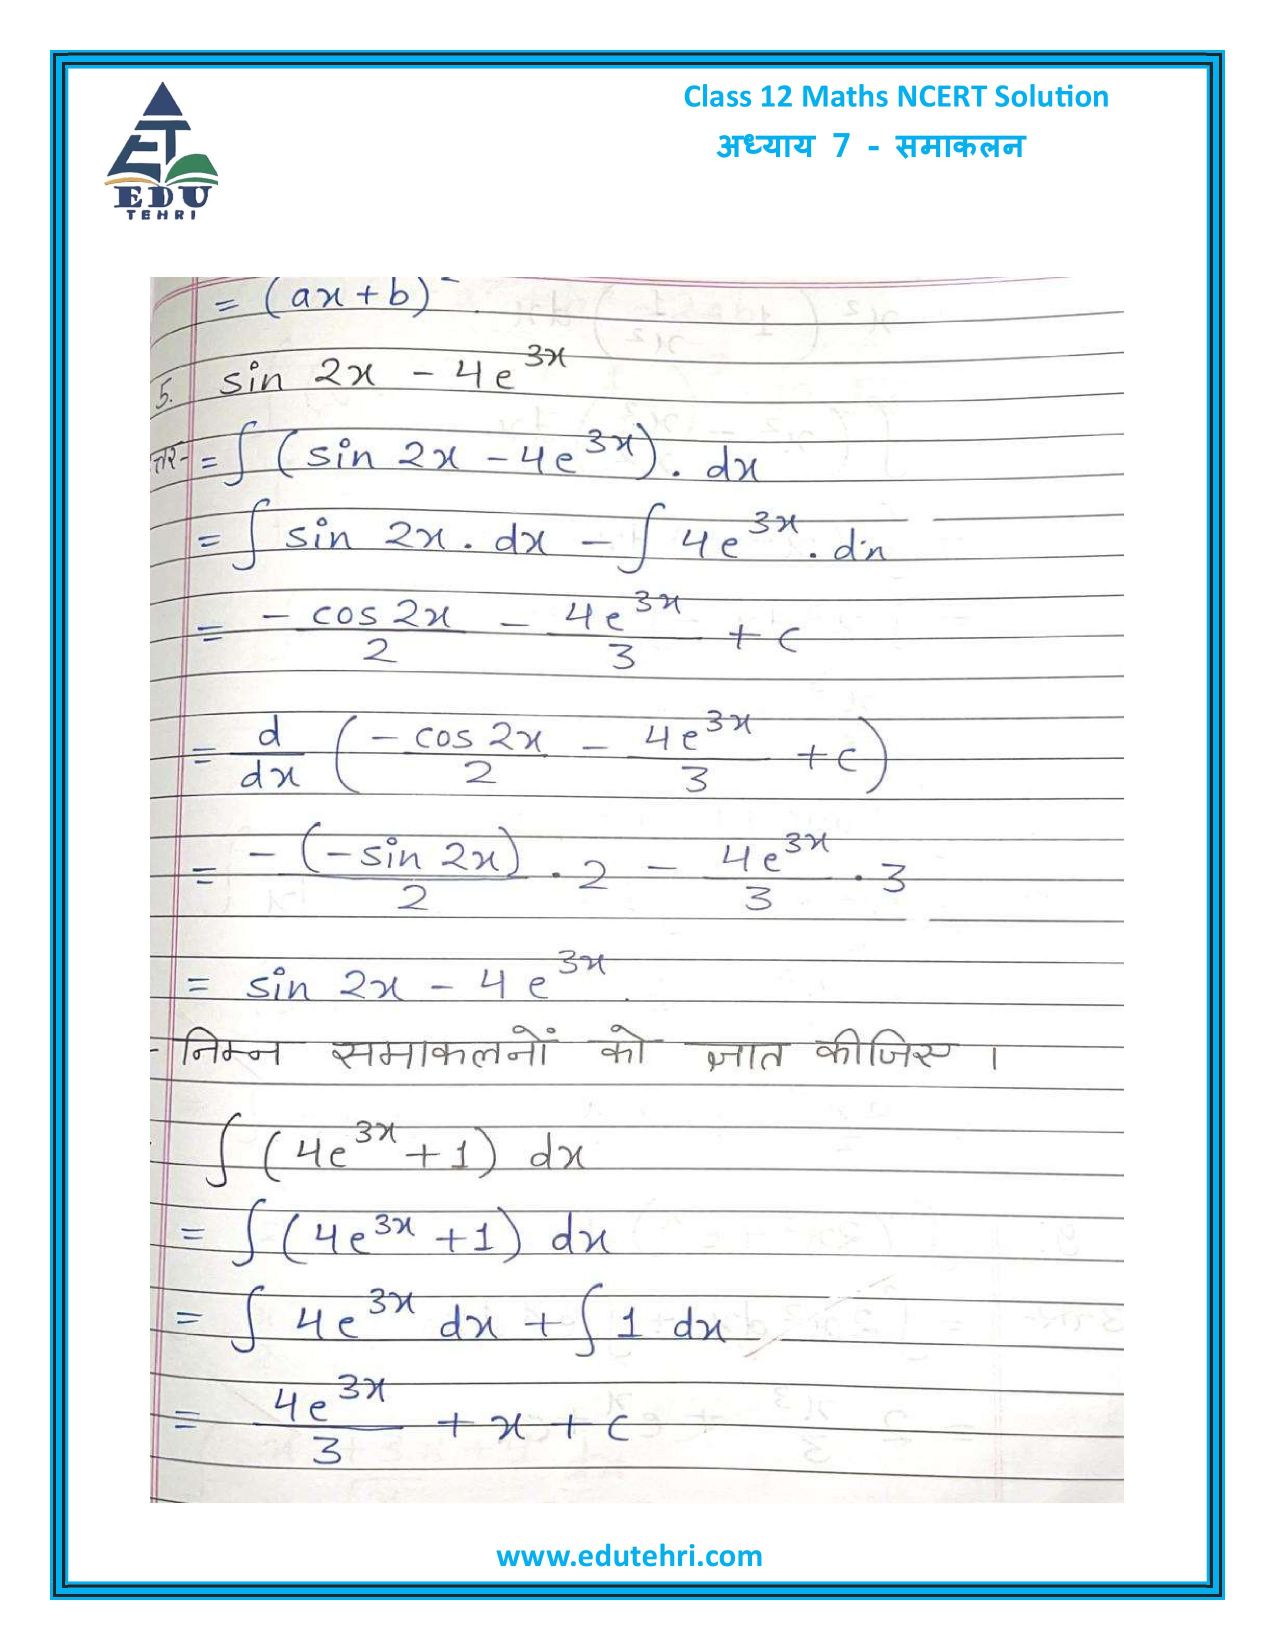 EDU
TEHRI
Class 12 Maths NCERT Solution
अध्याय 7 - समाकलन
= (ax+b)
5. sin 2x - 4e^3x
= ∫ (sin 2x - 4e^3x). dx
= ∫ sin 2x. dx - ∫ 4e^3x. dx
= -cos 2x/2 - 4e^3x/3 + c
= d/dx (-cos 2x/2 - 4e^3x/3 + c)
= -(-sin 2x)/2 . 2 - 4e^3x/3 . 3
= sin 2x - 4e^3x.
- निम्न समाकलनों को ज्ञात कीजिए ।
∫ (4e^3x + 1) dx
= ∫ (4e^3x + 1) dx
= ∫ 4e^3x dx + ∫ 1 dx
= 4e^3x/3 + x + c
www.edutehri.com